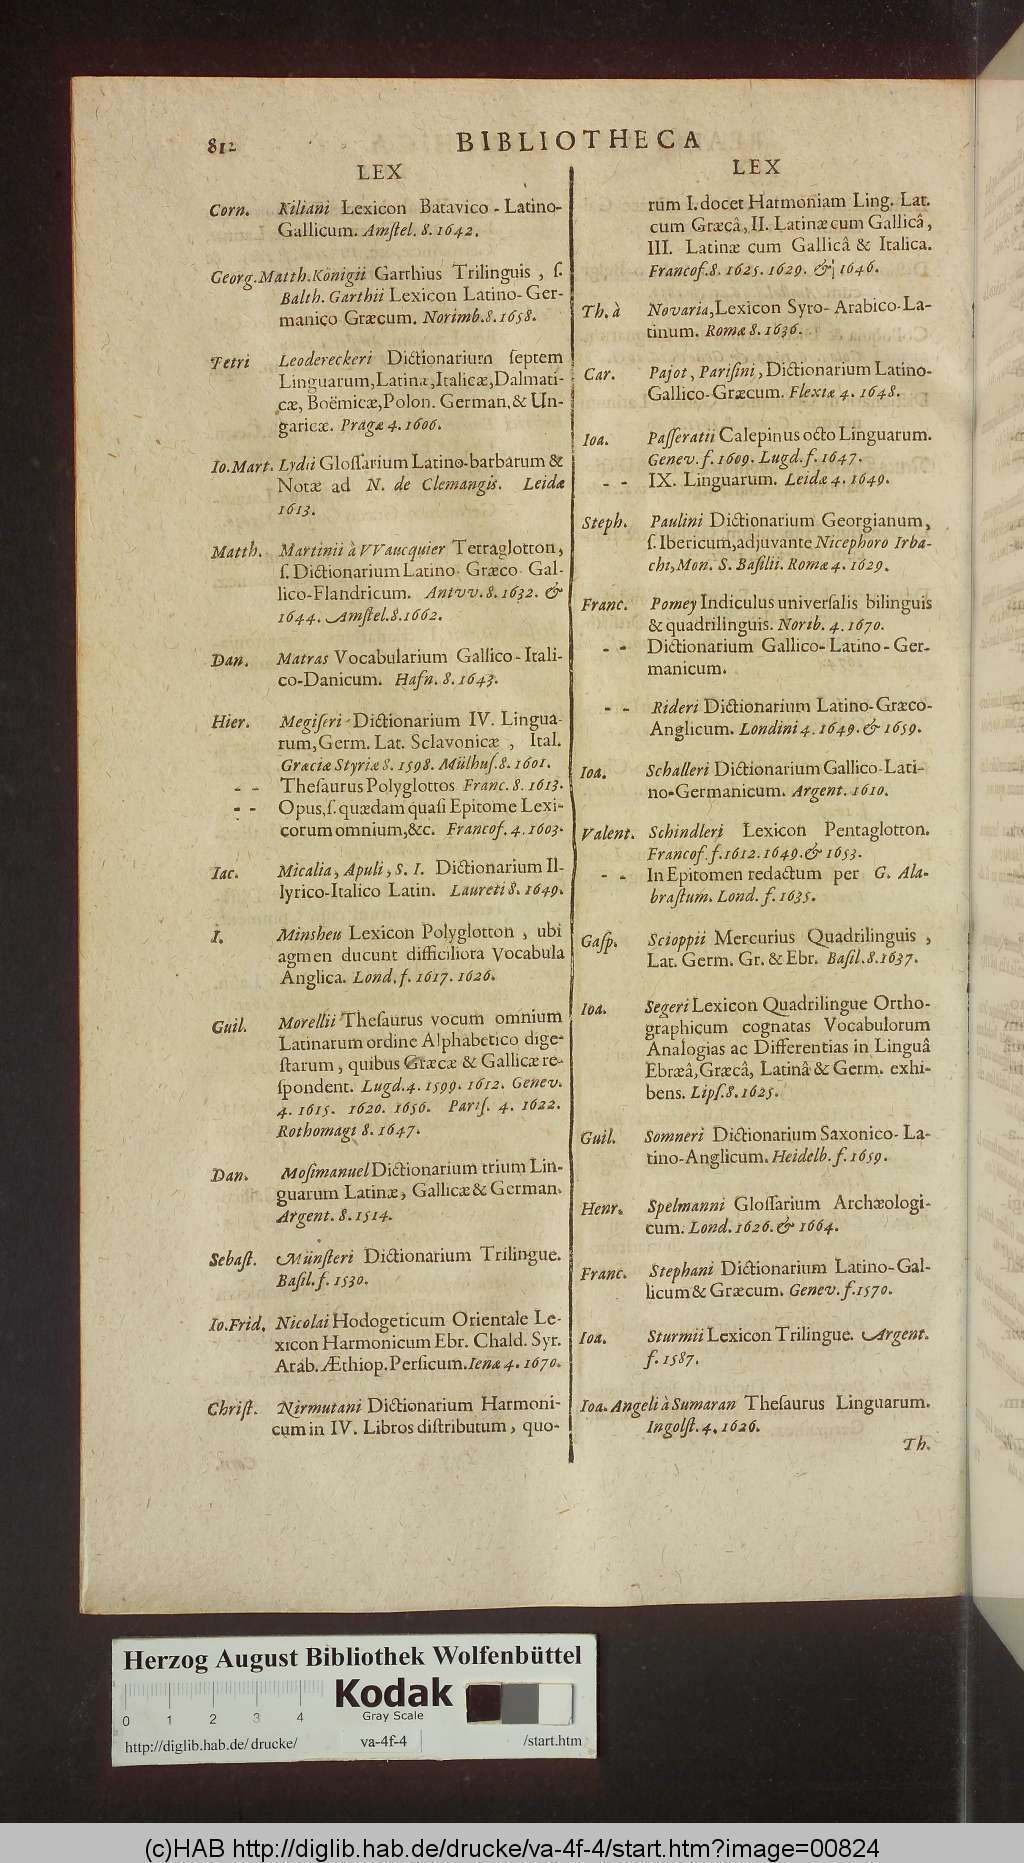 812
BIBLIOTHECA
LEX
Corn. Kiliani Lexicon Batavico-Latino-
Gallicum. Amſtel. 8. 1642.
Georg. Matth. Königii Garthius Trilinguis, ſ.
Balth. Garthii Lexicon Latino-Ger-
manico Græcum. Norimb. 8. 1658.
Petri Leodereckeri Dictionarium ſeptem
Linguarum, Latinæ, Italicæ, Dalmati-
cæ, Boëmicæ, Polon. German. & Un-
garicæ. Pragæ 4. 1606.
Io. Mart. Lydii Gloſſarium Latino-barbarum &
Notæ ad N. de Clemangis. Leidæ
1613.
Matth. Martinii à VVaucquier Tetraglotton,
ſ. Dictionarium Latino-Græco-Gal-
lico-Flandricum. Antvv. 8. 1632. &
1644. Amſtel. 8. 1662.
Dan. Matras Vocabularium Gallico-Itali-
co-Danicum. Hafn. 8. 1643.
Hier. Megiſeri Dictionarium IV. Lingua-
rum, Germ. Lat. Sclavonicæ, Ital.
Græciæ Styriæ 8. 1598. Mülhuſ. 8. 1601.
- - Theſaurus Polyglottos Franc. 8. 1613.
- - Opus, ſ. quædam quaſi Epitome Lexi-
corum omnium, &c. Francof. 4. 1603.
Iac. Micalia, Apuli, S. I. Dictionarium Il-
lyrico-Italico Latin. Laureti 8. 1649.
I. Minsheu Lexicon Polyglotton, ubi
agmen ducunt difficiliora Vocabula
Anglica. Lond. f. 1617. 1626.
Guil. Morellii Theſaurus vocum omnium
Latinarum ordine Alphabetico dige-
ſtarum, quibus Græcæ & Gallicæ re-
ſpondent. Lugd. 4. 1599. 1612. Genev.
4. 1615. 1620. 1656. Pariſ. 4. 1622.
Rothomagi 8. 1647.
Dan. Moſimanuel Dictionarium trium Lin-
guarum Latinæ, Gallicæ & German.
Argent. 8. 1514.
Sebaſt. Münſteri Dictionarium Trilingue.
Baſil. f. 1530.
Io. Frid. Nicolai Hodogeticum Orientale Le-
xicon Harmonicum Ebr. Chald. Syr.
Arab. Æthiop. Perſicum. Ienæ 4. 1670.
Chriſt. Nirmutani Dictionarium Harmoni-
cum in IV. Libros diſtributum, quo-
LEX
rum I. docet Harmoniam Ling. Lat.
cum Græcâ, II. Latinæ cum Gallicâ,
III. Latinæ cum Gallicâ & Italica.
Francof. 8. 1625. 1629. & 1646.
Th. à Novaria, Lexicon Syro-Arabico-La-
tinum. Romæ 8. 1636.
Car. Pajot, Pariſini, Dictionarium Latino-
Gallico-Græcum. Flexiæ 4. 1648.
Ioa. Paſſeratii Calepinus octo Linguarum.
Genev. f. 1609. Lugd. f. 1647.
- - IX. Linguarum. Leidæ 4. 1649.
Steph. Paulini Dictionarium Georgianum,
ſ. Ibericum, adjuvante Nicephoro Irba-
chi, Mon. S. Baſilii. Romæ 4. 1629.
Franc. Pomey Indiculus univerſalis bilinguis
& quadrilinguis. Norib. 4. 1670.
- - Dictionarium Gallico-Latino-Ger-
manicum.
- - Rideri Dictionarium Latino-Græco-
Anglicum. Londini 4. 1649. & 1659.
Ioa. Schalleri Dictionarium Gallico-Lati-
no-Germanicum. Argent. 1610.
Valent. Schindleri Lexicon Pentaglotton.
Francof. f. 1612. 1649. & 1653.
- - In Epitomen redactum per G. Ala-
braſtum. Lond. f. 1635.
Gaſp. Scioppii Mercurius Quadrilinguis,
Lat. Germ. Gr. & Ebr. Baſil. 8. 1637.
Ioa. Segeri Lexicon Quadrilingue Ortho-
graphicum cognatas Vocabulorum
Analogias ac Differentias in Linguâ
Ebræâ, Græcâ, Latinâ & Germ. exhi-
bens. Lipſ. 8. 1625.
Guil. Somneri Dictionarium Saxonico-La-
tino-Anglicum. Heidelb. f. 1659.
Henr. Spelmanni Gloſſarium Archæologi-
cum. Lond. 1626. & 1664.
Franc. Stephani Dictionarium Latino-Gal-
licum & Græcum. Genev. f. 1570.
Ioa. Sturmii Lexicon Trilingue. Argent.
f. 1587.
Ioa. Angeli à Sumaran Theſaurus Linguarum.
Ingolſt. 4. 1626.
Th.
Herzog August Bibliothek Wolfenbüttel
Kodak
Gray Scale
0 1 2 3 4
http://diglib.hab.de/drucke/ va-4f-4 /start.htm
(c)HAB http://diglib.hab.de/drucke/va-4f-4/start.htm?image=00824